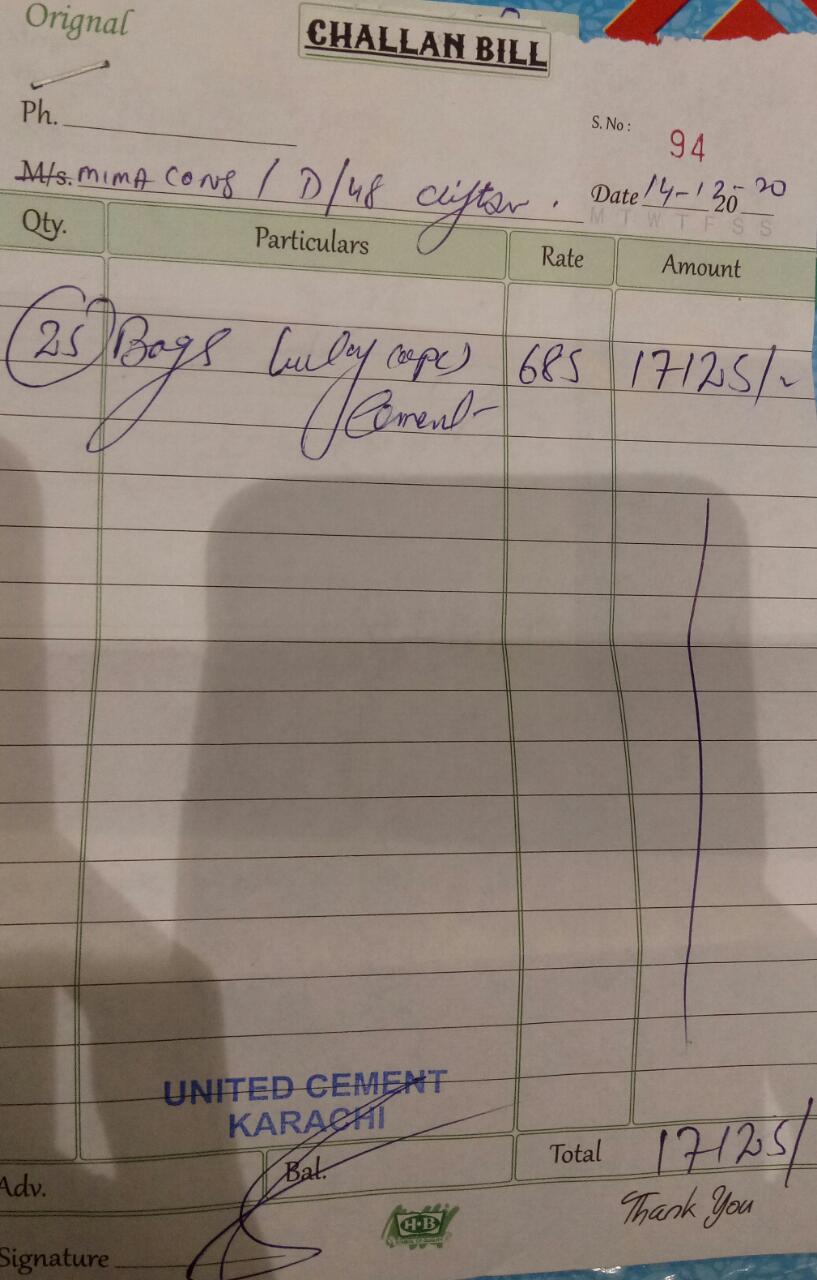 Orignal
CHALLAN BILL
Ph.
S. No : 94
M/s. MIMA CONS / D/48 Clifton .
Date 14-12-20 20
M T W T F S S
Qty. Particulars Rate Amount
25 Bags 685 17125/-
Cement
UNITED CEMENT
KARACHI
Total 17125/
Adv. Bal.
Thank You
H·B
Signature